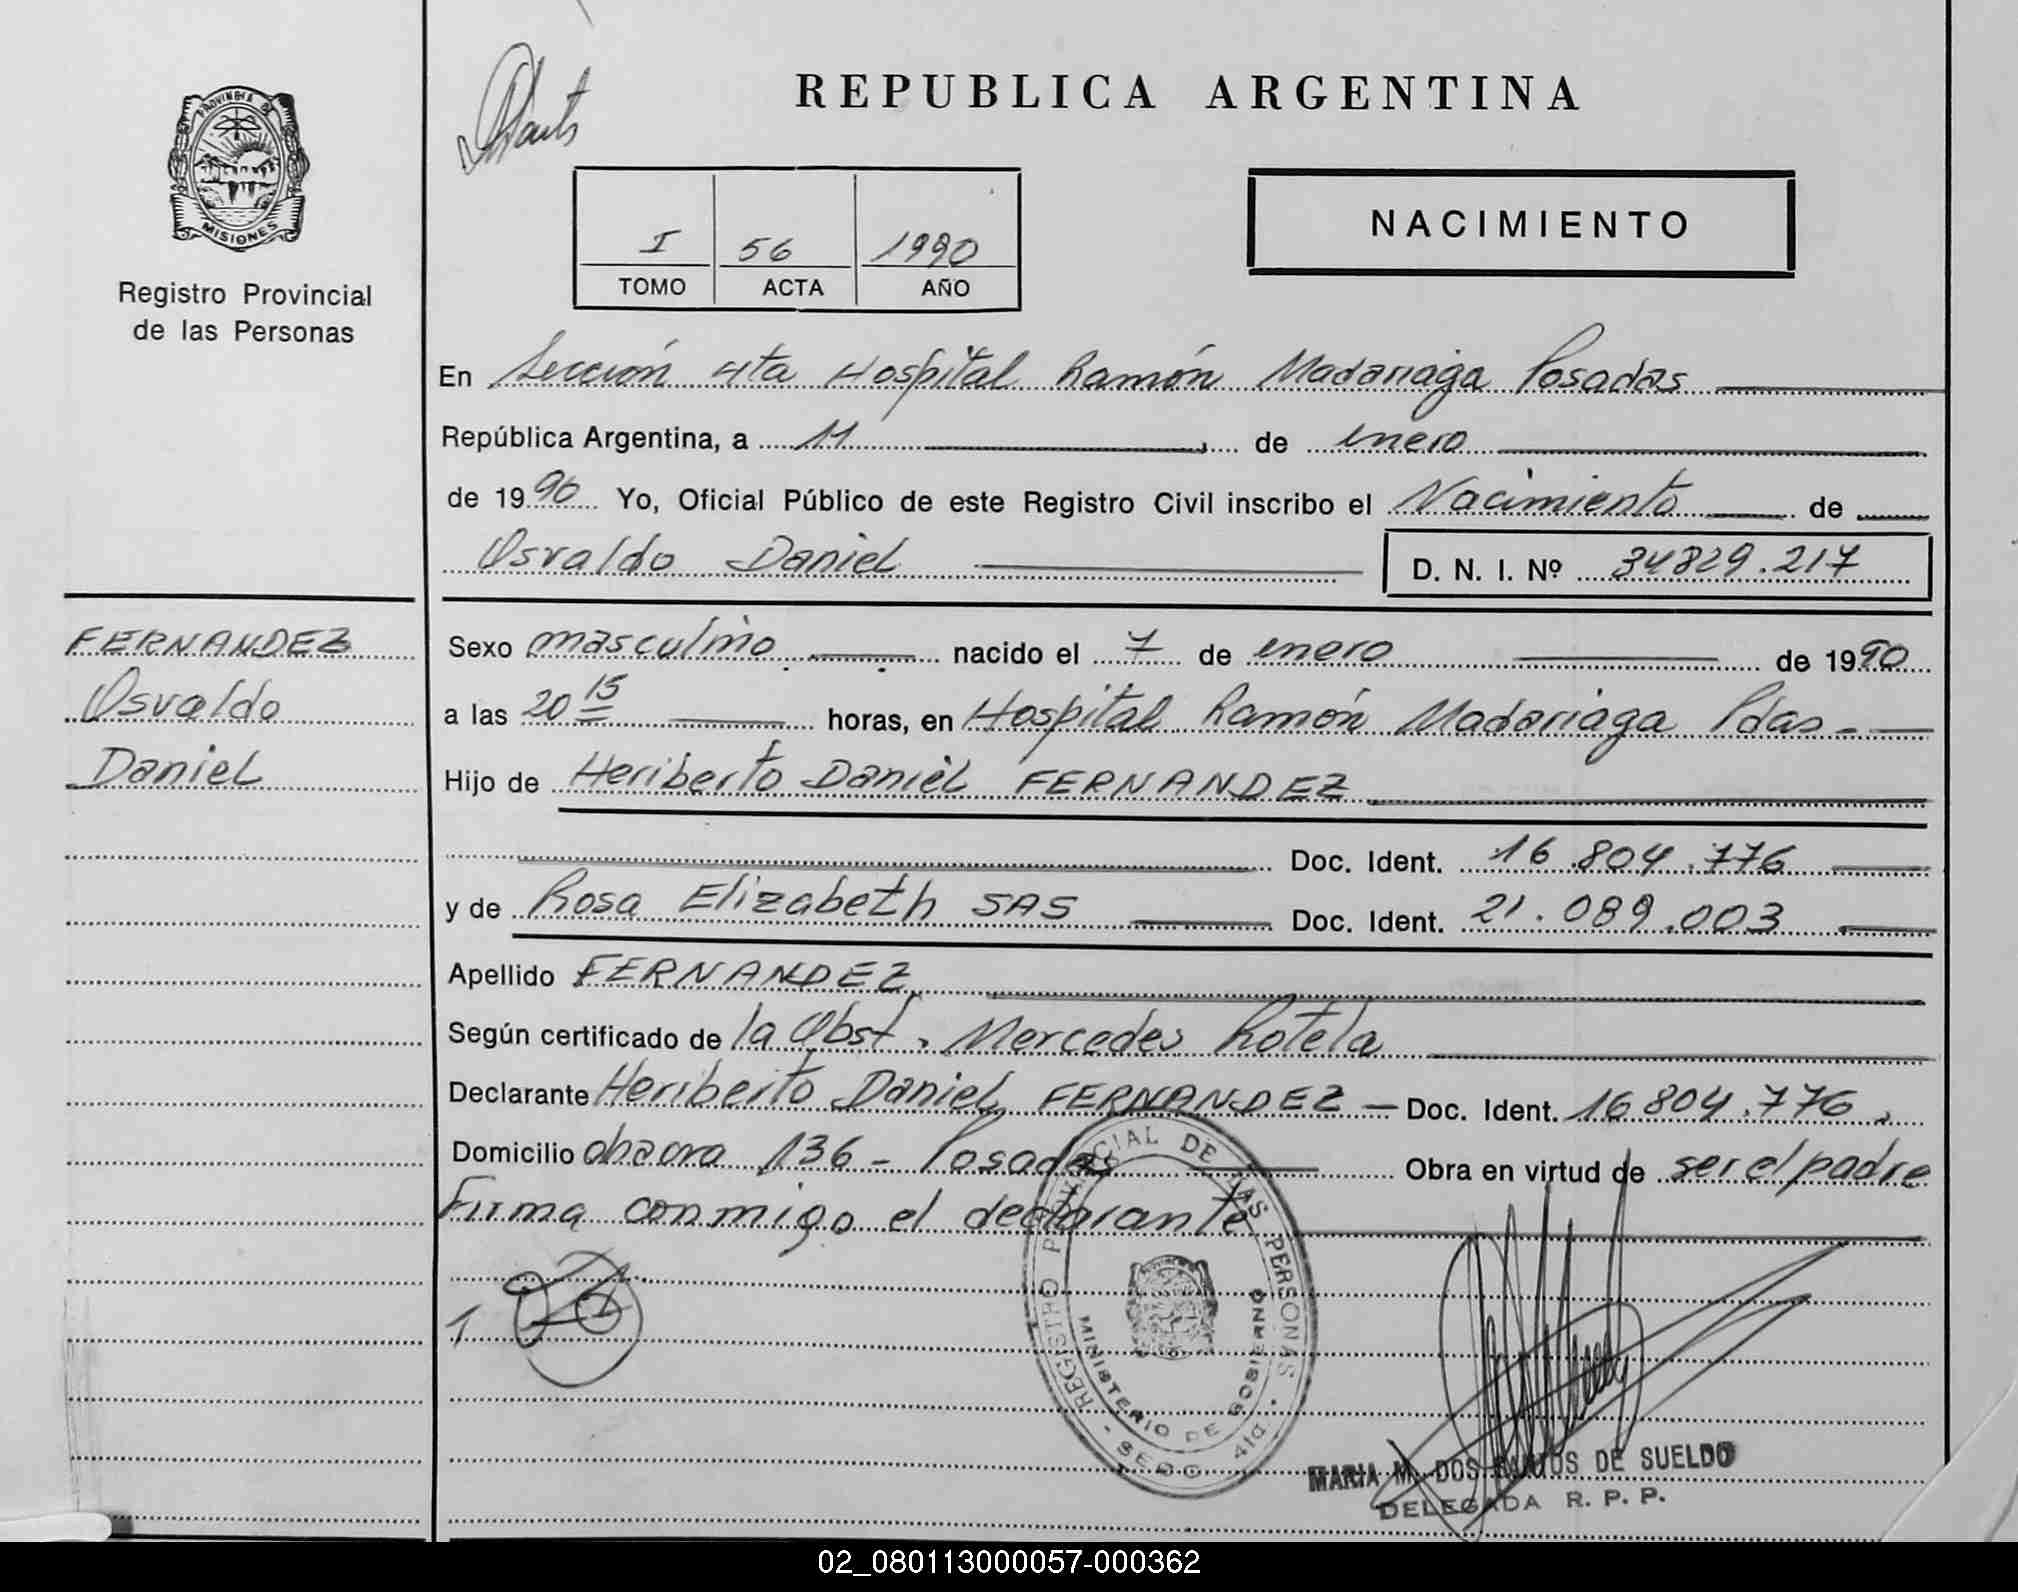 REPUBLICA ARGENTINA
PROVINCIA DE
MISIONES
Registro Provincial
de las Personas
NACIMIENTO
I 56 1990
TOMO ACTA AÑO
En Sección 4ta Hospital Ramón Madariaga Posadas
República Argentina, a 11 de enero
de 1990 Yo, Oficial Público de este Registro Civil inscribo el Nacimiento de
Osvaldo Daniel D. N. I. Nº 34829.217
FERNANDEZ
Osvaldo
Daniel
Sexo masculino nacido el 7 de enero de 1990
a las 20 15 horas, en Hospital Ramón Madariaga Pdas -
Hijo de Heriberto Daniel FERNANDEZ
Doc. Ident. 16.804.776
y de Rosa Elizabeth SAS Doc. Ident. 21.089.003
Apellido FERNANDEZ
Según certificado de la Obst. Mercedes Rotela
Declarante Heriberto Daniel FERNANDEZ - Doc. Ident. 16804.776.
Domicilio chacra 136 - Posadas Obra en virtud de ser el padre
Firma conmigo el declarante
REGISTRO PROVINCIAL DE LAS PERSONAS
MINISTERIO DE GOBIERNO
- SECC. 4ta
MARIA M. DOS SANTOS DE SUELDO
DELEGADA R. P. P.
02_080113000057-000362